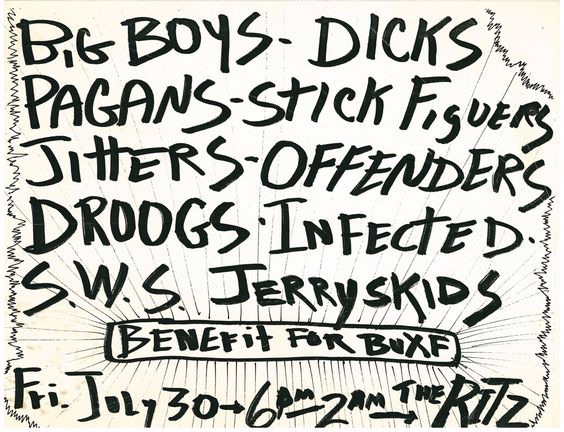 BiG BOYS- DICKS
PAGANS-StiCK FiguERS
JittERS-OFFENDERS
DROOGS·INFECTED·
S.W.S. JERRYSKIDS
BENEFit FOR BUXF
Fri. July 30→6PM-2AM→THE RITZ